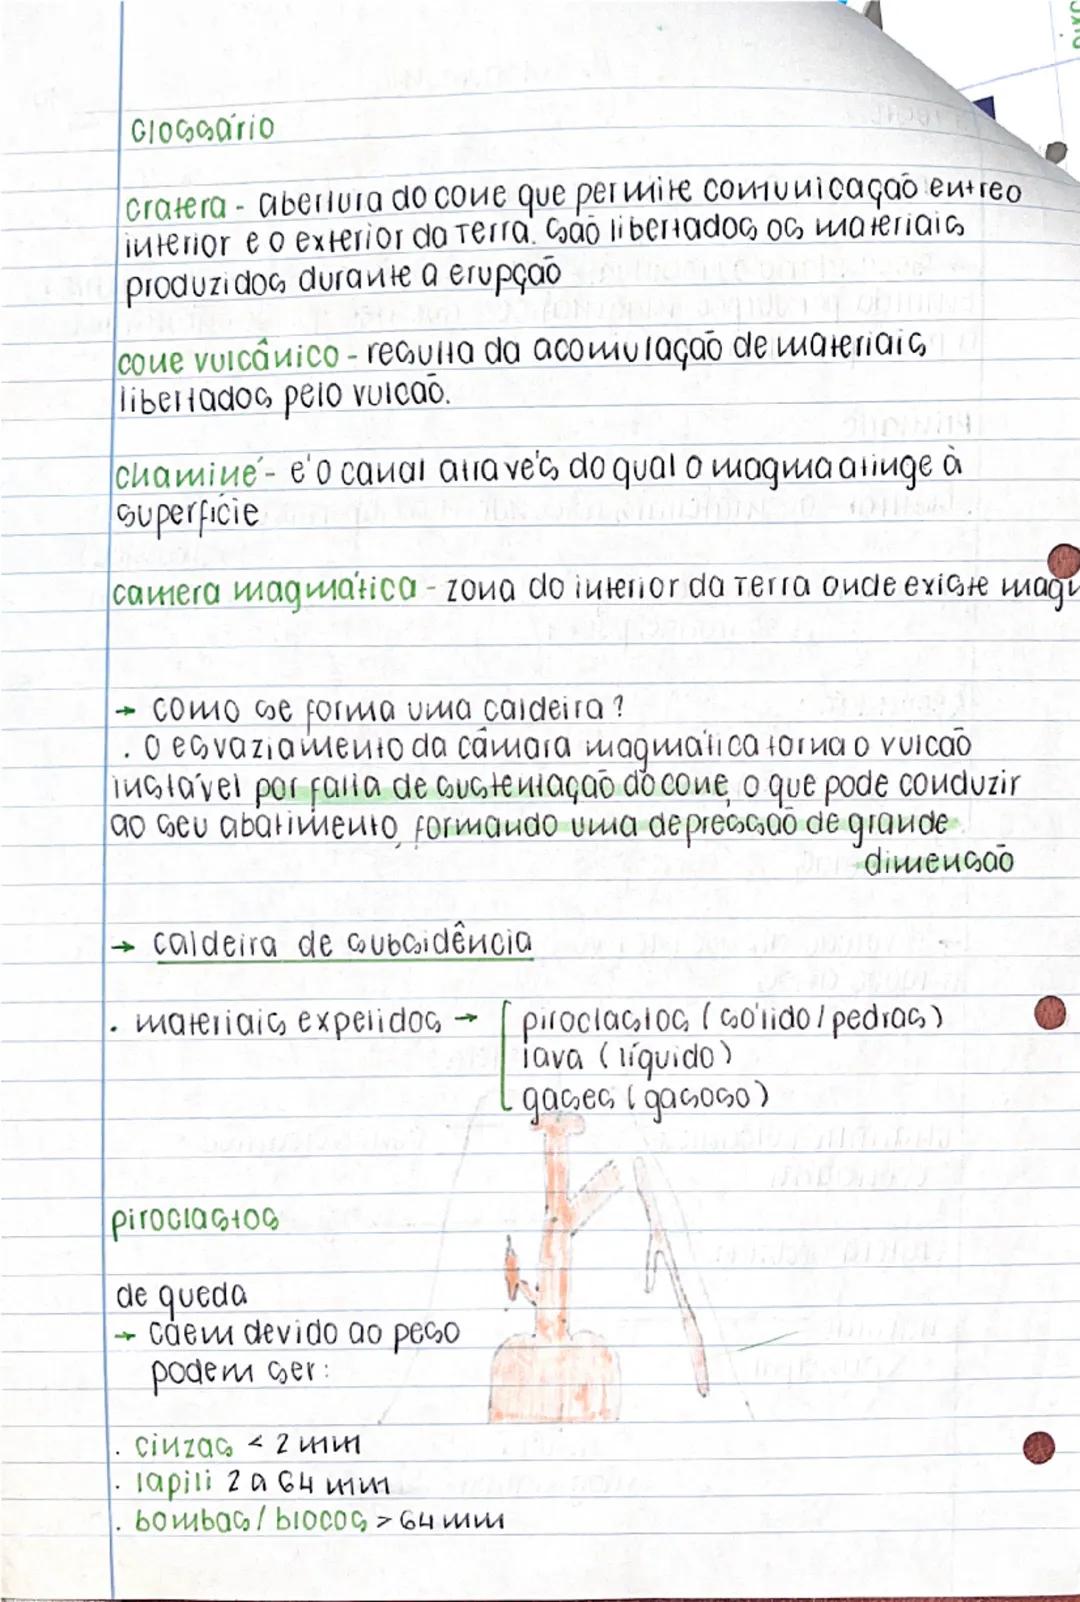 Glossário
cratera - abertura do cone que permite comunicação entre o
interior e o exterior da Terra. São libertados os materiais
produzidos durante a erupção
cone vulcânico - resulta da acomulação de materiais
libertados pelo vulcão.
chaminé - é o canal através do qual o magma atinge à
superfície
camera magmática - zona do interior da Terra onde existe mag
→ como se forma uma caldeira ?
. O esvaziamento da câmara magmática torna o vulcão
instável por falta de sustentação do cone, o que pode conduzir
ao seu abatimento, formando uma depressão de grande
dimensão
→ caldeira de subsidência
. materiais expelidos → piroclastos ( sólido / pedras )
lava ( líquido )
gases ( gasoso )
piroclastos
de queda
→ caem devido ao peso
podem ser :
. cinzas < 2 mm
. lapili 2 a 64 mm
. bombas / blocos > 64 mm